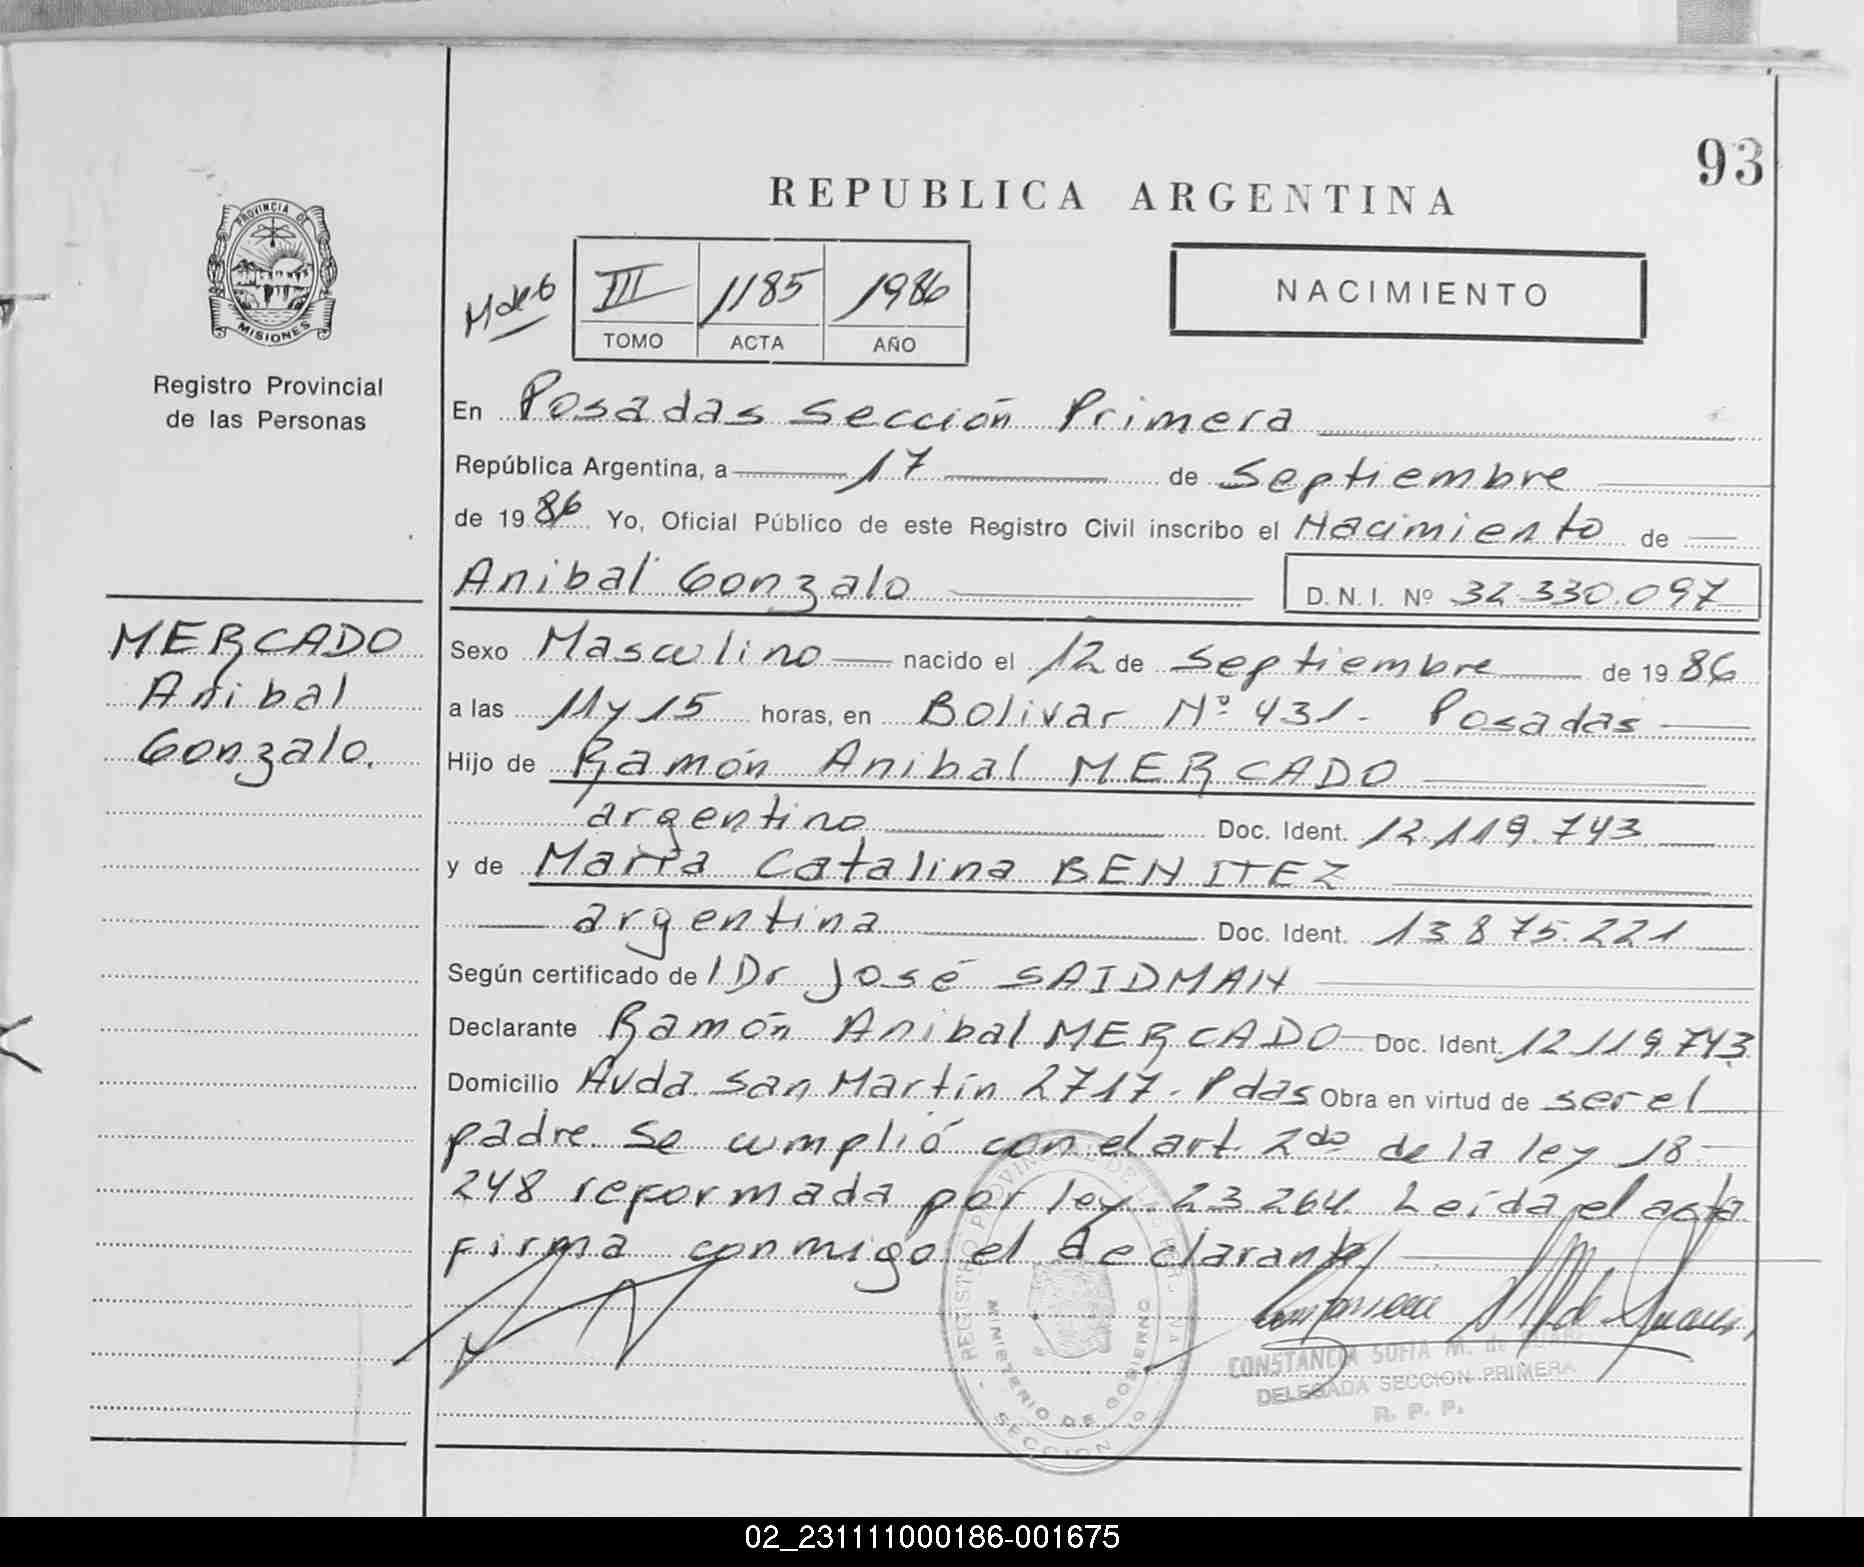 93
REPUBLICA ARGENTINA
PROVINCIA DE
MISIONES
Registro Provincial
de las Personas
III 1185 1986
TOMO ACTA AÑO
NACIMIENTO
En Posadas Sección Primera
República Argentina, a 17 de Septiembre
de 1986 Yo, Oficial Público de este Registro Civil inscribo el Nacimiento de
Anibal Gonzalo D.N.I. Nº 32.330.097
MERCADO
Anibal
Gonzalo.
Sexo Masculino nacido el 12 de Septiembre de 1986
a las 11 y 15 horas, en Bolivar Nº 431. Posadas
Hijo de Ramón Anibal MERCADO
argentino Doc. Ident. 12.119.743
y de María Catalina BENITEZ
argentina Doc. Ident. 13.875.221
Según certificado de l Dr José SAIDMAN
Declarante Ramón Anibal MERCADO Doc. Ident. 12.119.743
Domicilio Avda. San Martín 2717. Pdas Obra en virtud de ser el
padre. Se cumplió con el art. 2do de la ley 18-
248 reformada por ley 23.264. Leída el acta
firma conmigo el declarante/
CONSTANCIA SOFIA M. de
DELEGADA SECCION PRIMERA
R. P. P.
REGISTRO PROVINCIAL DE LAS
MINISTERIO DE GOBIERNO
SECCION
02_231111000186-001675